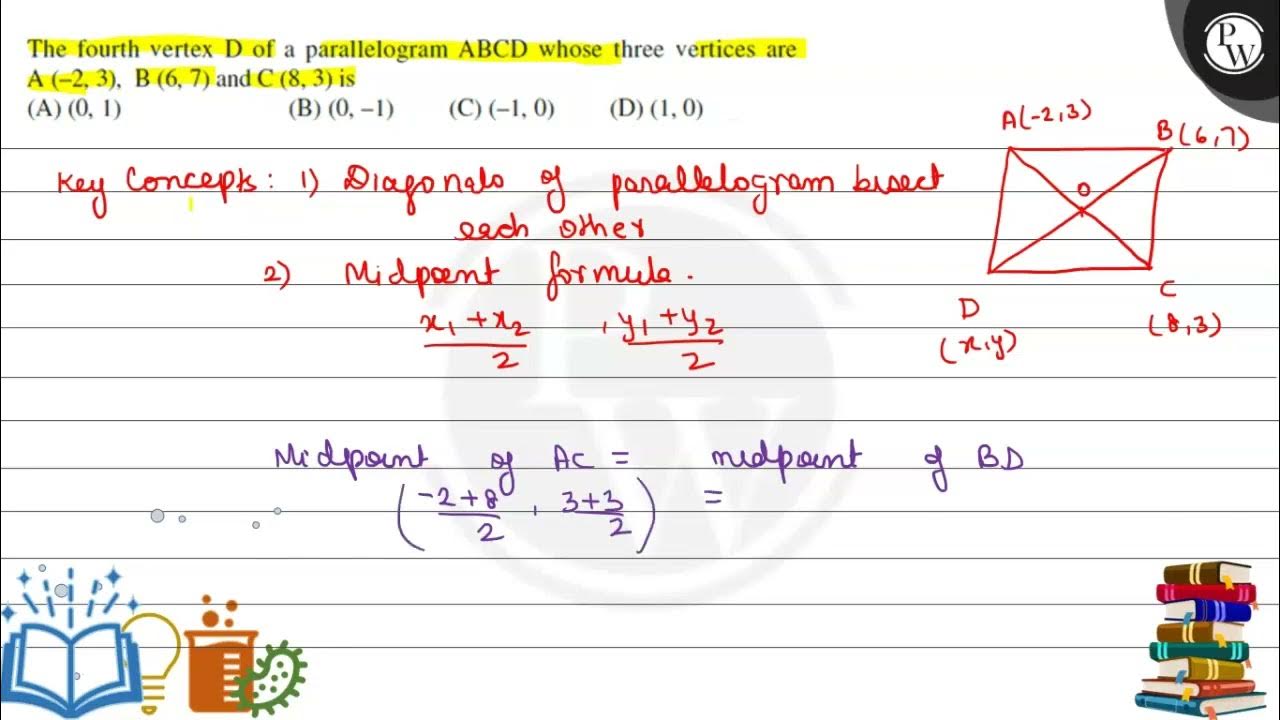 The fourth vertex D of a parallelogram ABCD whose three vertices are
A (–2, 3), B (6, 7) and C (8, 3) is
(A) (0, 1) (B) (0, –1) (C) (–1, 0) (D) (1, 0)
PW
A(-2,3)
B(6,7)
O
D
(x,y)
C
(8,3)
Key Concepts: 1) Diagonals of parallelogram bisect
each other
2) Midpoint formula.
x₁ + x₂ / 2 , y₁ + y₂ / 2
Midpoint of AC = midpoint of BD
( -2+8 / 2 , 3+3 / 2 ) =
PW